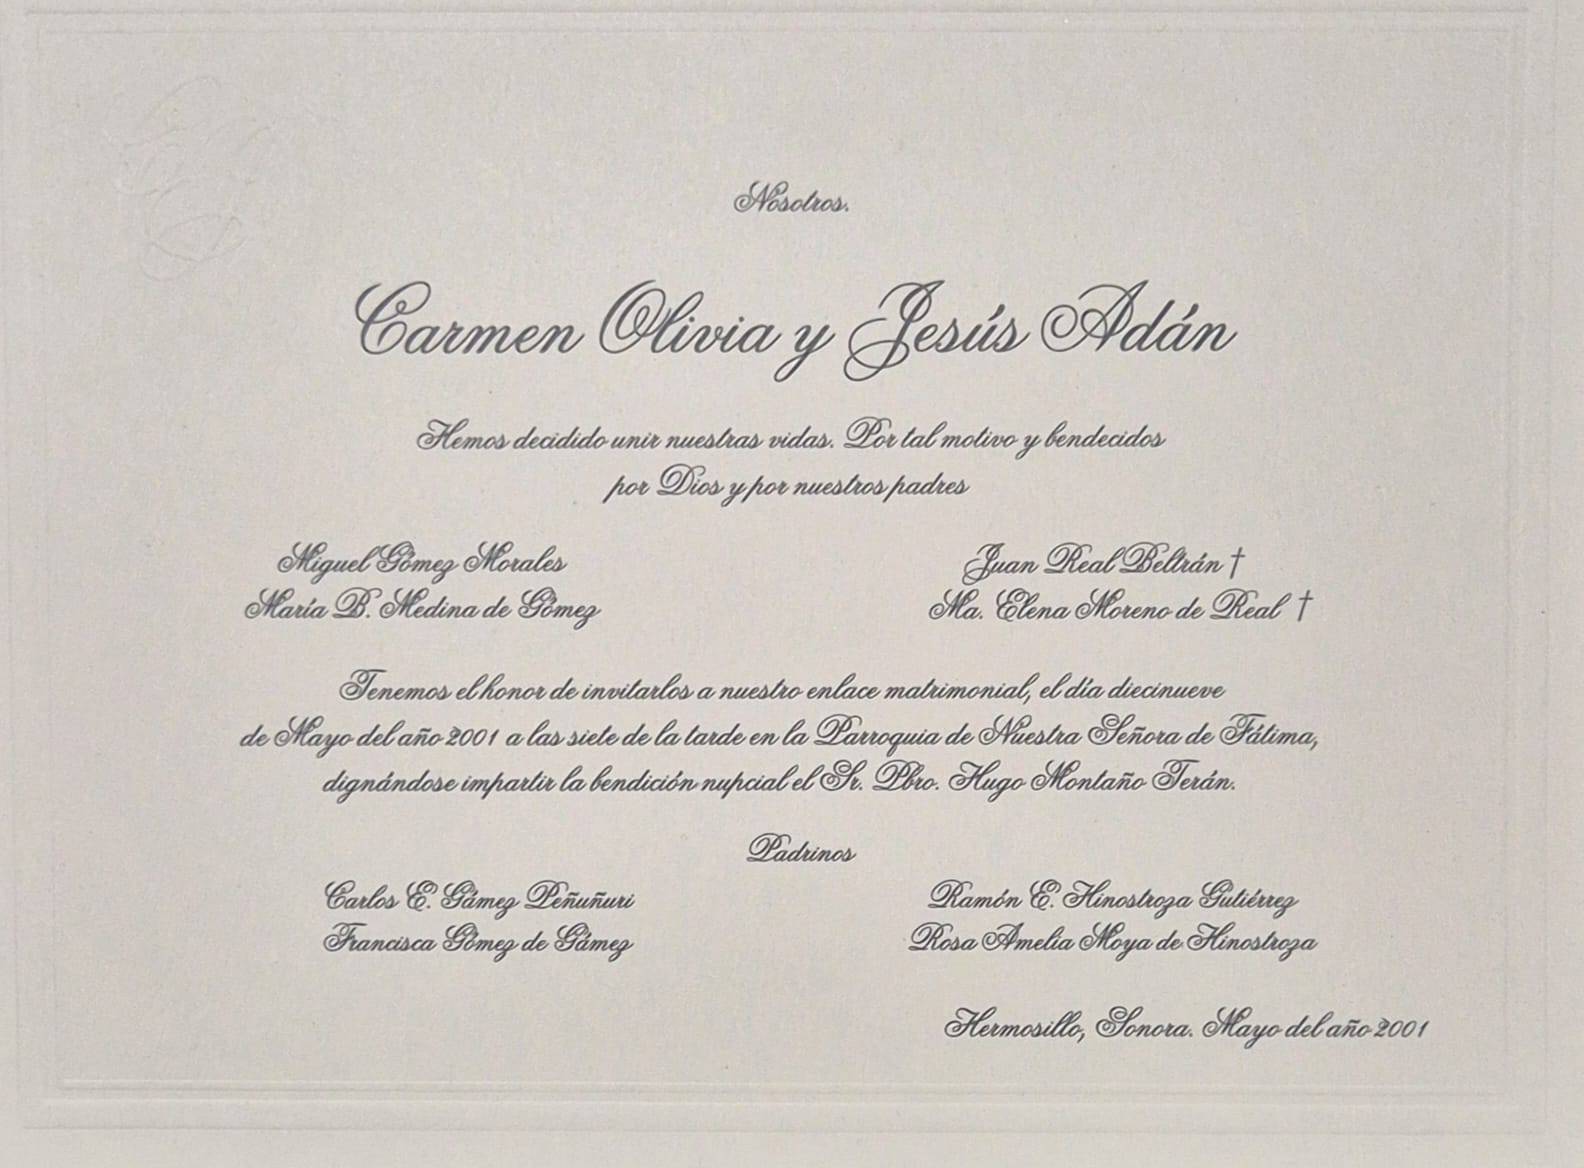 Nosotros.
Carmen Olivia y Jesús Adán
Hemos decidido unir nuestras vidas. Por tal motivo y bendecidos
por Dios y por nuestros padres
Miguel Gómez Morales
María B. Medina de Gómez
Juan Real Beltrán †
Ma. Elena Moreno de Real †
Tenemos el honor de invitarlos a nuestro enlace matrimonial, el día diecinueve
de Mayo del año 2001 a las siete de la tarde en la Parroquia de Nuestra Señora de Fátima,
dignándose impartir la bendición nupcial el Sr. Pbro. Hugo Montaño Terán.
Padrinos
Carlos E. Gámez Peñuñuri
Francisca Gómez de Gámez
Ramón E. Hinostroza Gutiérrez
Rosa Amelia Moya de Hinostroza
Hermosillo, Sonora. Mayo del año 2001